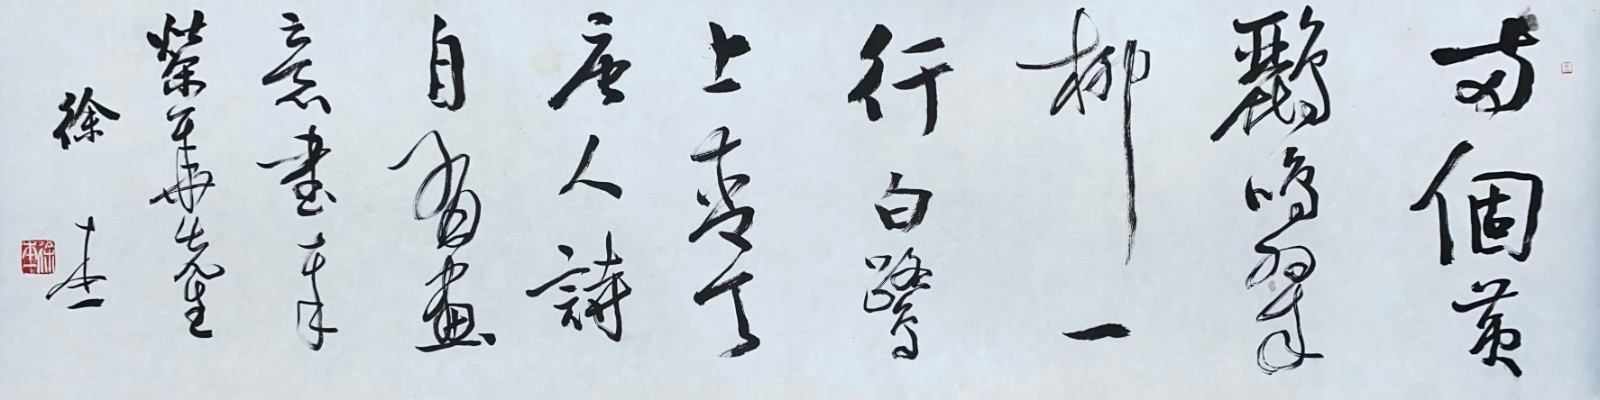 两個黄
鸝鳴翠
柳一
行白鷺
上青天
唐人詩
自有畫
意書奉
榮華先生
徐本一
徐本一